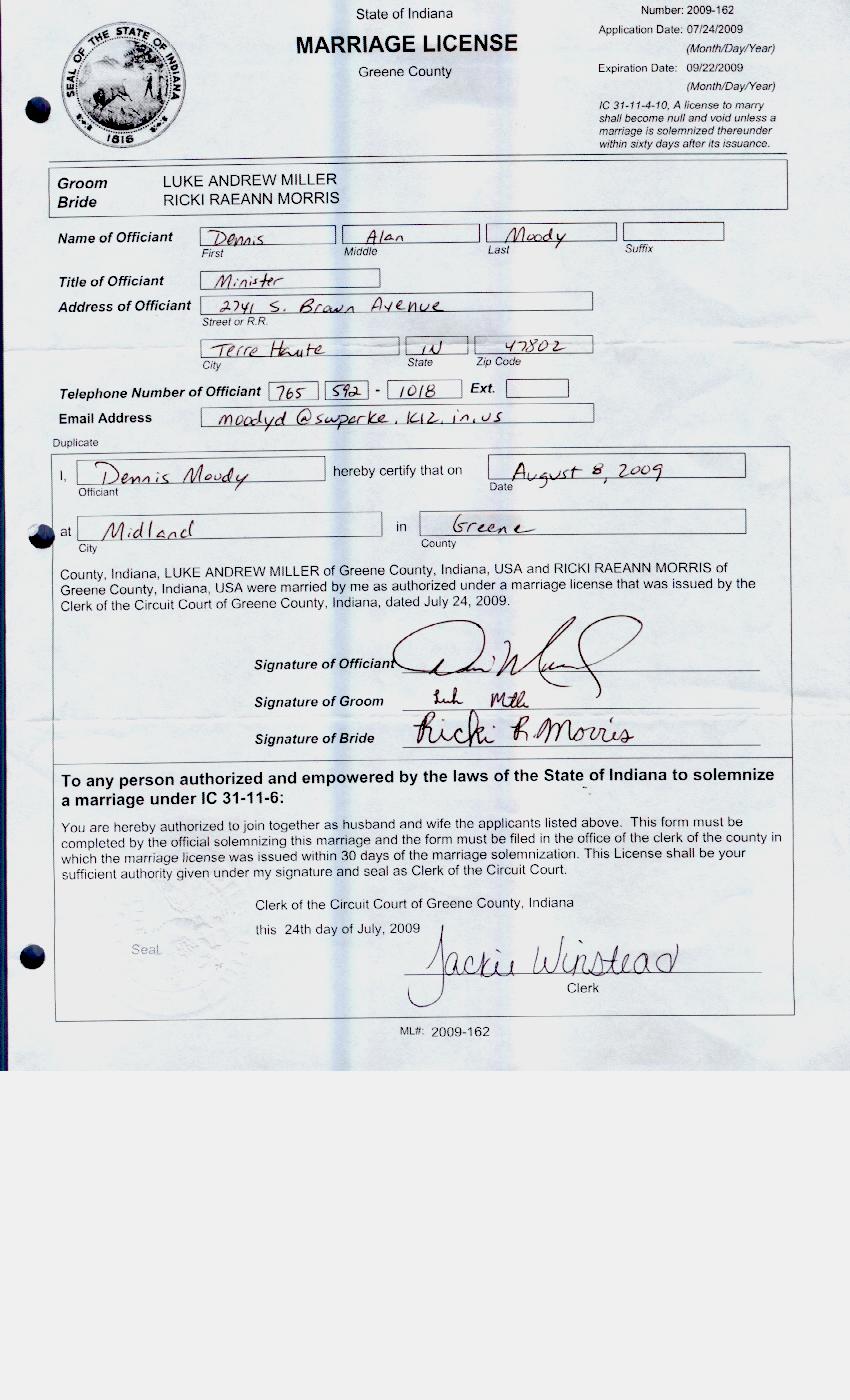 State of Indiana
MARRIAGE LICENSE
Greene County
Number: 2009-162
Application Date: 07/24/2009
(Month/Day/Year)
Expiration Date: 09/22/2009
(Month/Day/Year)
IC 31-11-4-10, A license to marry
shall become null and void unless a
marriage is solemnized thereunder
within sixty days after its issuance.
SEAL OF THE STATE OF INDIANA
1816
Groom LUKE ANDREW MILLER
Bride RICKI RAEANN MORRIS
Name of Officiant Dennis Alan Moody
First Middle Last Suffix
Title of Officiant Minister
Address of Officiant 2741 S. Brown Avenue
Street or R.R.
Terre Haute IN 47802
City State Zip Code
Telephone Number of Officiant 765 592 - 1018 Ext.
Email Address moodyd@swparke.k12.in.us
Duplicate
I, Dennis Moody hereby certify that on August 8, 2009
Officiant Date
at Midland in Greene
City County
County, Indiana, LUKE ANDREW MILLER of Greene County, Indiana, USA and RICKI RAEANN MORRIS of
Greene County, Indiana, USA were married by me as authorized under a marriage license that was issued by the
Clerk of the Circuit Court of Greene County, Indiana, dated July 24, 2009.
Signature of Officiant
Signature of Groom
Signature of Bride Ricki R. Morris
To any person authorized and empowered by the laws of the State of Indiana to solemnize
a marriage under IC 31-11-6:
You are hereby authorized to join together as husband and wife the applicants listed above. This form must be
completed by the official solemnizing this marriage and the form must be filed in the office of the clerk of the county in
which the marriage license was issued within 30 days of the marriage solemnization. This License shall be your
sufficient authority given under my signature and seal as Clerk of the Circuit Court.
Clerk of the Circuit Court of Greene County, Indiana
this 24th day of July, 2009
Seal
Jackie Winstead
Clerk
ML#: 2009-162